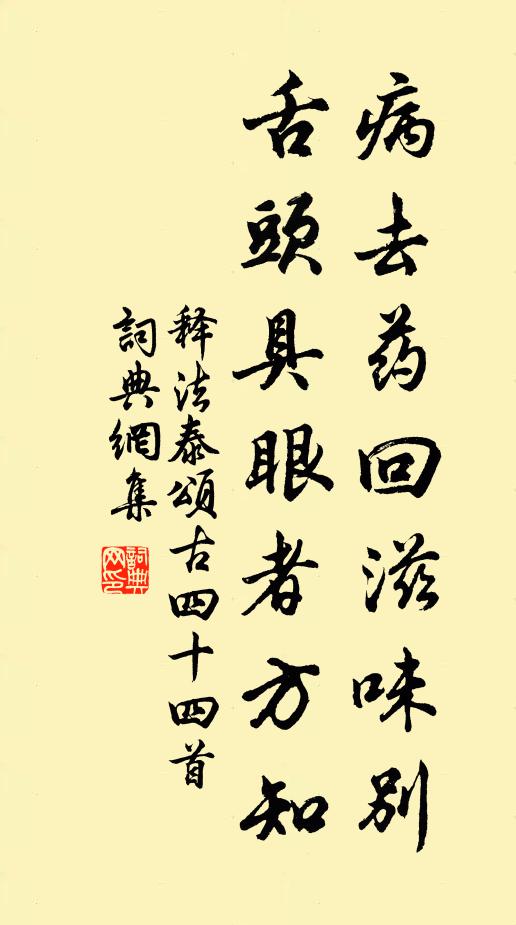 病去药回滋味别
舌頭具眼者方知
释法泰頌古四十四首
詞典網集
詞典网印